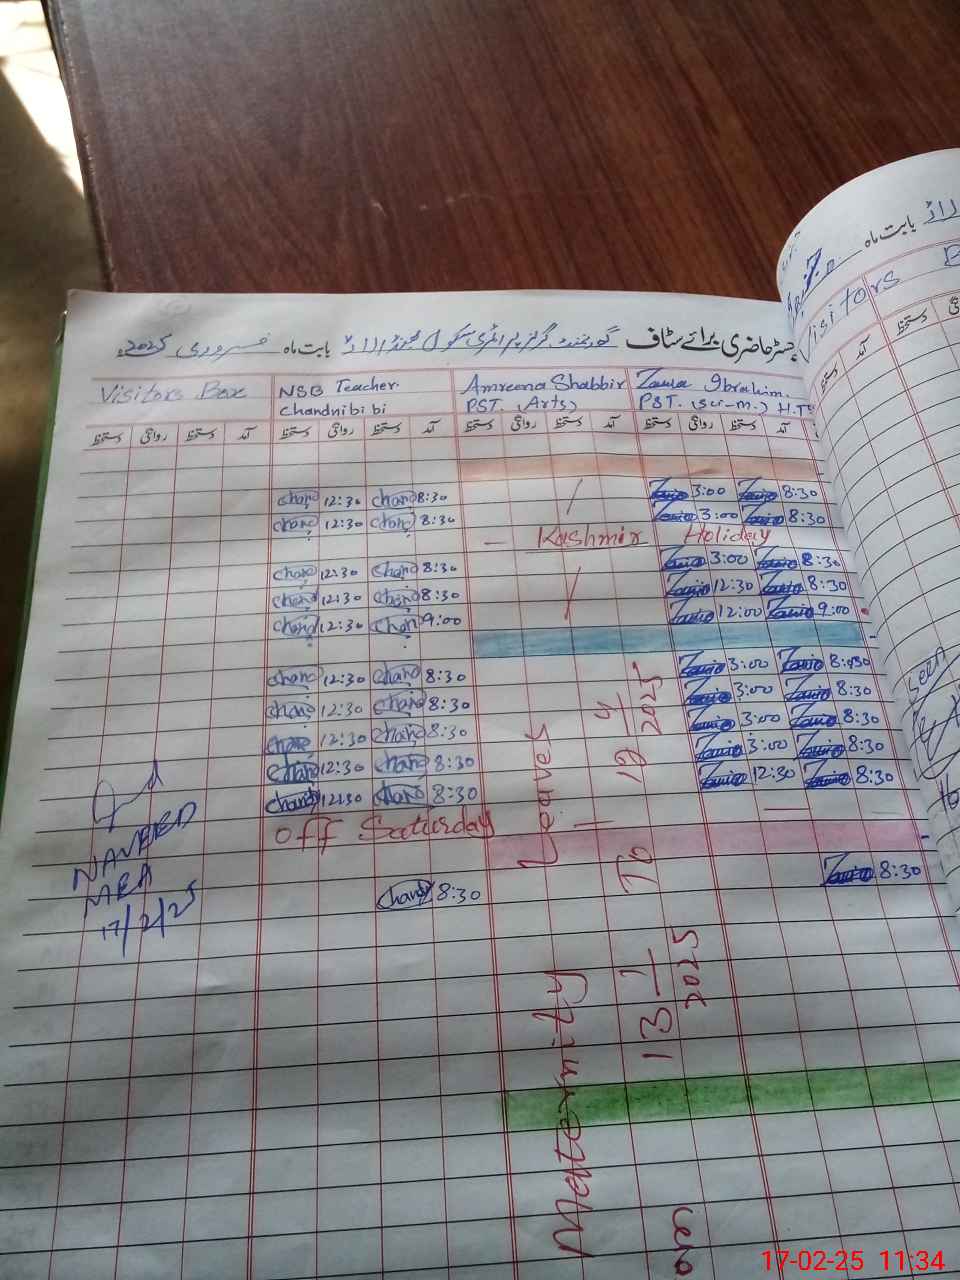 رجسٹر حاضری برائے سٹاف گورنمنٹ گرلز پرائمری سکول بابت ماہ فروری 2025ء
Visitors Box
NSB Teacher
Chandni bibi
Amreena Shabbir
PST. (Arts)
Zawa Ibrahim.
PST. (sci-m.) H.T
آمد دستخط روانگی دستخط آمد دستخط روانگی دستخط آمد دستخط روانگی دستخط
chand 12:30 chand 8:30 / 3:00 8:30
chand 12:30 chand 8:30 3:00 8:30
— Kashmir Holiday
chand 12:30 chand 8:30 3:00 8:30
chand 12:30 chand 8:30 / 12:30 8:30
chand 12:30 chand 9:00 12:00 9:00
chand 12:30 chand 8:30 3:00 8:30
chand 12:30 chand 8:30 3:00 8:30
chand 12:30 chand 8:30 3:00 8:30
chand 12:30 chand 8:30 3:00 8:30
chand 12:30 chand 8:30 12:30 8:30
off Saturday
chand 8:30 8:30
Maternity Leaves
13 1/2025 To 12 4/2025
NAVEED
MEA
17/2/25
بابت ماہ
Visitors B
آمد دستخط
seen
17-02-25 11:34